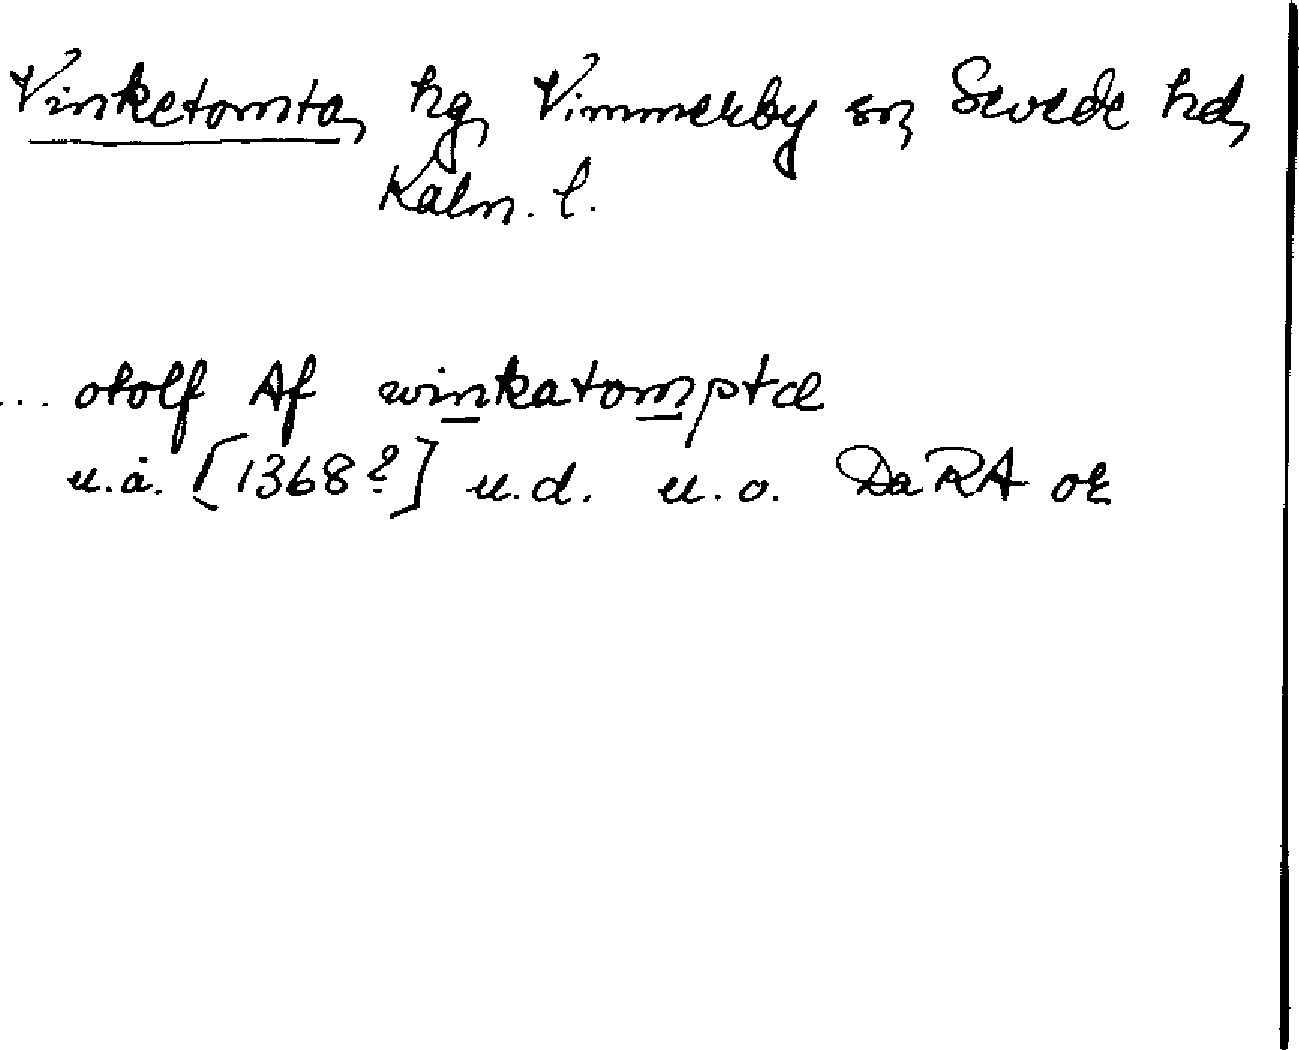 Vinketomta, hg, Vimmerby sn, Sevede hd,
Kalm. l.
... otolf Af winkatomptæ
u.å. [1368?] u.d. u.o. DaRA or